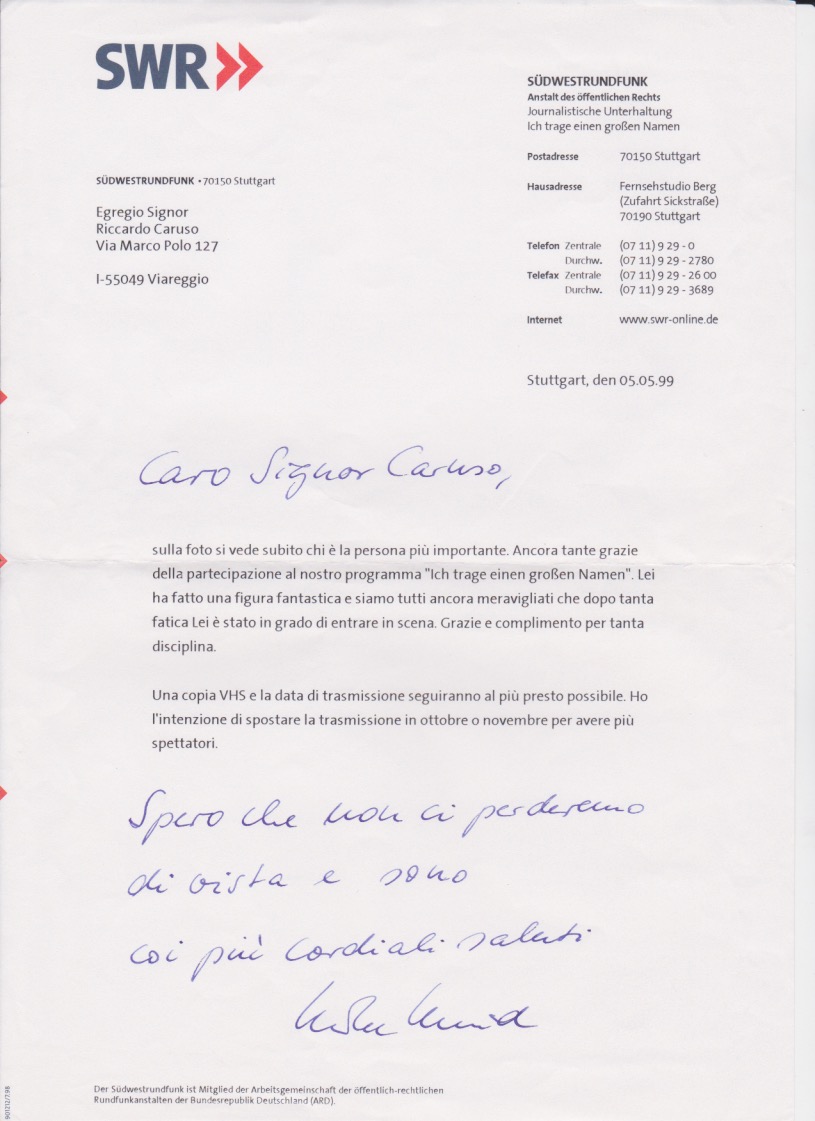 SWR
SÜDWESTRUNDFUNK
Anstalt des öffentlichen Rechts
Journalistische Unterhaltung
Ich trage einen großen Namen
Postadresse 70150 Stuttgart
Hausadresse Fernsehstudio Berg
(Zufahrt Sickstraße)
70190 Stuttgart
Telefon Zentrale (07 11) 9 29 - 0
Durchw. (07 11) 9 29 - 2780
Telefax Zentrale (07 11) 9 29 - 26 00
Durchw. (07 11) 9 29 - 3689
Internet www.swr-online.de
SÜDWESTRUNDFUNK • 70150 Stuttgart
Egregio Signor
Riccardo Caruso
Via Marco Polo 127
I-55049 Viareggio
Stuttgart, den 05.05.99
Caro Signor Caruso,
sulla foto si vede subito chi è la persona più importante. Ancora tante grazie
della partecipazione al nostro programma "Ich trage einen großen Namen". Lei
ha fatto una figura fantastica e siamo tutti ancora meravigliati che dopo tanta
fatica Lei è stato in grado di entrare in scena. Grazie e complimento per tanta
disciplina.
Una copia VHS e la data di trasmissione seguiranno al più presto possibile. Ho
l'intenzione di spostare la trasmissione in ottobre o novembre per avere più
spettatori.
Spero che non ci perderemo
di vista e sono
coi più cordiali saluti
Der Südwestrundfunk ist Mitglied der Arbeitsgemeinschaft der öffentlich-rechtlichen
Rundfunkanstalten der Bundesrepublik Deutschland (ARD).